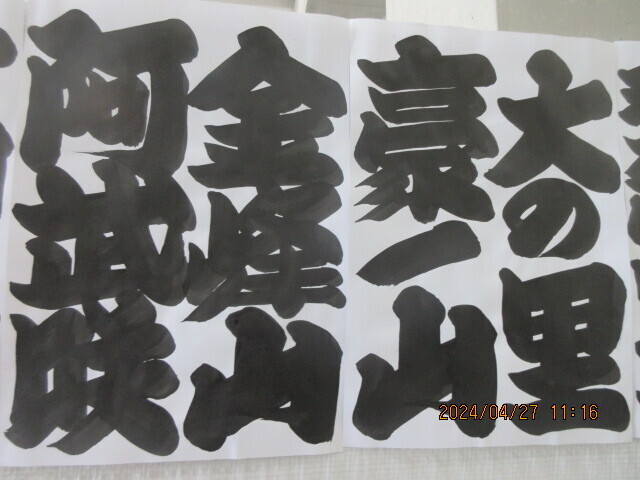 大の里
豪ノ山
金峰山
阿武咲
2024/04/27 11:16